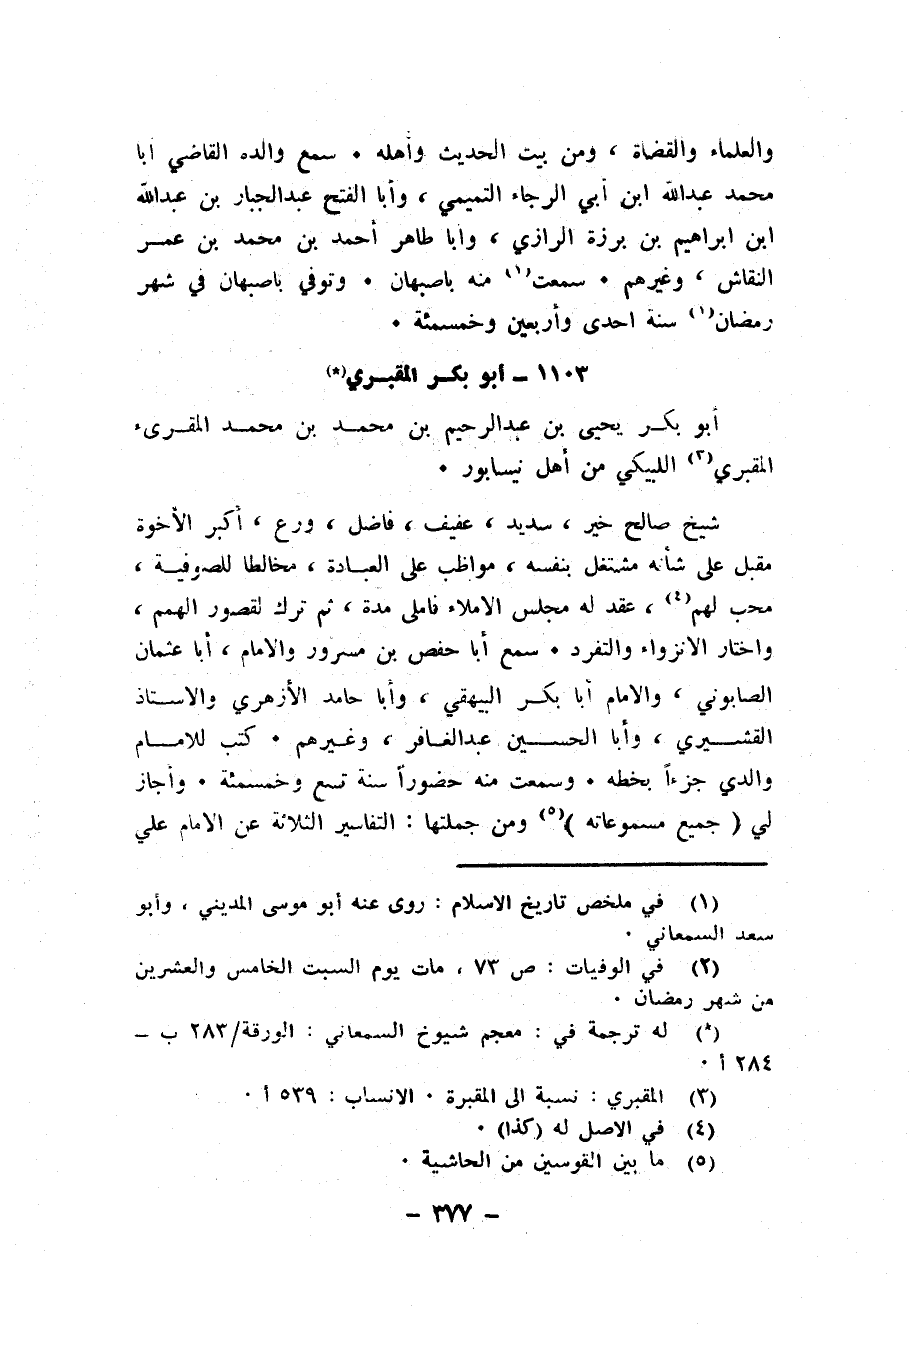 والعلماء والقضاة ، ومن بيت الحديث وأهله ٠ سمع والده القاضي ابا
محمد عبدالله ابن أبي الرجاء التميمي ، وأبا الفتح عبدالجبار بن عبدالله
ابن ابراهيم بن برزة الرازي ، وابا طاهر أحمد بن محمد بن عمر
النقاش ، وغيرهم ٠ سمعت(١) منه باصبهان ٠ وتوفي باصبهان في شهر
رمضان(١) سنة احدى وأربعين وخمسمئة ٠
١١٠٣ ــ أبو بكر المقبري(*)
أبو بكر يحيى بن عبدالرحيم بن محمد بن محمد المقرىء
المقبري(٣) اللبيكي من أهل نيسابور ٠
شيخ صالح خير ، سديد ، عفيف ، فاضل ، ورع ، أكبر الأخوة
مقبل على شأنه مشتغل بنفسه ، مواظب على العبادة ، مخالطا للصوفية ،
محب لهم(٤) ، عقد له مجلس الاملاء فاملى مدة ، ثم ترك لقصور الهمم ،
واختار الانزواء والتفرد ٠ سمع أبا حفص بن مسرور والامام ، أبا عثمان
الصابوني ، والامام أبا بكر البيهقي ، وأبا حامد الأزهري والاستاذ
القشيري ، وأبا الحسين عبدالغافر ، وغيرهم ٠ كتب للامام
والدي جزءاً بخطه ٠ وسمعت منه حضوراً سنة تسع وخمسمئة ٠ وأجاز
لي ( جميع مسموعاته )(٥) ومن جملتها : التفاسير الثلاثة عن الامام علي
(١) في ملخص تاريخ الاسلام : روى عنه أبو موسى المديني ، وأبو
سعد السمعاني ٠
(٢) في الوفيات : ص ٧٣ ، مات يوم السبت الخامس والعشرين
من شهر رمضان ٠
(*) له ترجمة في : معجم شيوخ السمعاني : الورقة/٢٨٣ ب ــ
٢٨٤ أ ٠
(٣) المقبري : نسبة الى المقبرة ٠ الانساب : ٥٣٩ أ ٠
(٤) في الاصل له (كذا) ٠
(٥) ما بين القوسين من الحاشية ٠
– ٣٧٧ –